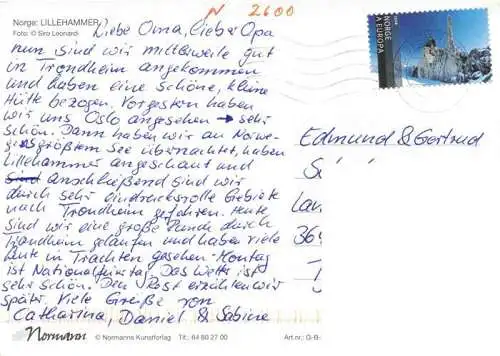 Norge: LILLEHAMMER
Foto: © Siro Leonardi
N 2600
Liebe Oma, lieber Opa
nun sind wir mittlerweile gut
in Trondheim angekommen
und haben eine schöne, kleine
Hütte bezogen. Vorgestern haben
wir uns Oslo angesehen → sehr
schön. Dann haben wir an Norwe-
gens größtem See übernachtet, haben
Lillehammer angeschaut und
anschließend sind wir
durch sehr eindrucksvolle Gebiete
nach Trondheim gefahren. Heute
sind wir eine große Runde durch
Trondheim gelaufen und haben viele
Leute in Trachten gesehen - Montag
ist Nationalfeiertag. Das Wetter ist
sehr schön. Den Rest erzählen wir
später. Viele Grüße von
Catharina, Daniel & Sabine
NORGE
A EUROPA
Edmund & Gertrud
S
Lan
36
Normann
© Normanns Kunstforlag Tlf.: 64 80 27 00
Art.nr.: G-9-